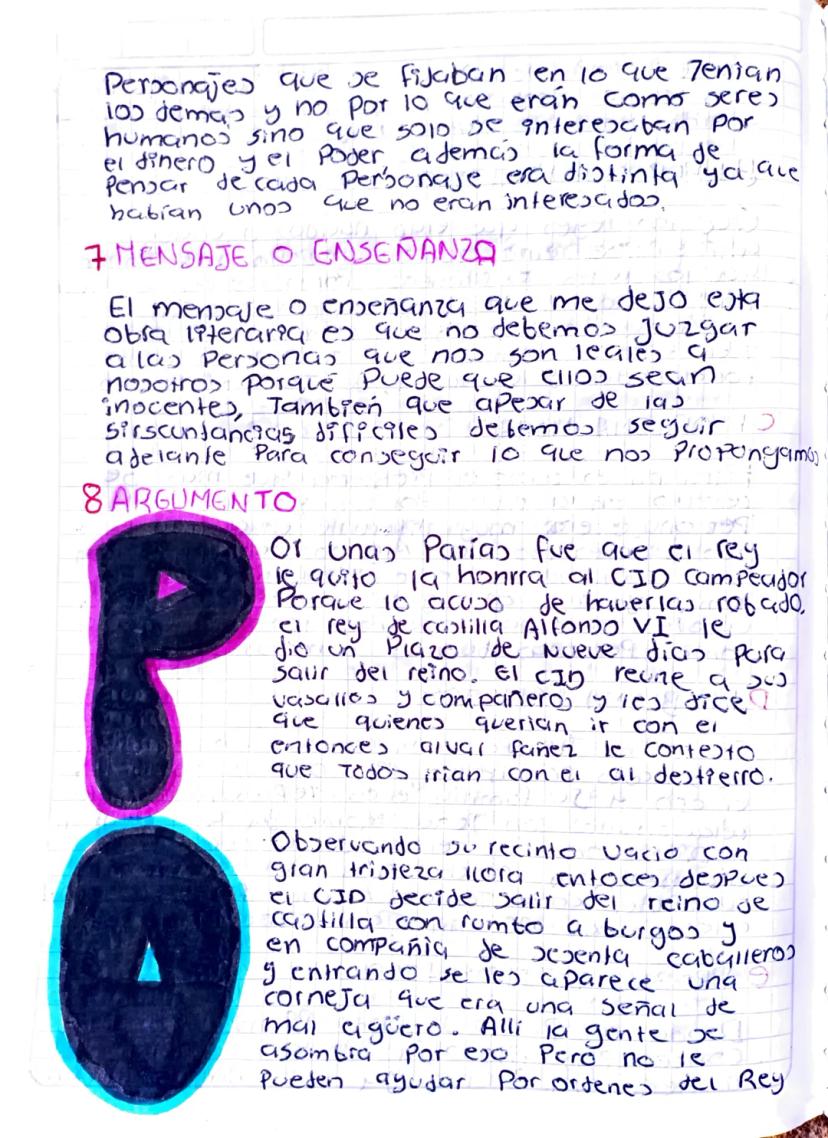 Personajes que se fijaban en lo que Tenian
los demas y no por lo que erán como seres
humanos sino que solo se interesaban por
el dinero y el Poder, además la forma de
Pensar de cada Personaje era distinta ya que
habían unos que no eran interesados.
7 MENSAJE O ENSEÑANZA
El mensaje o enseñanza que me dejo esta
obra literaria es que no debemos Juzgar
a las Personas que nos son leales a
nosotros Porque Puede que ellos sean
inocentes, También que apesar de las
sirscunstancias dificiles debemos seguir
adelante Para conseguir lo que nos Propongamos
8 ARGUMENTO
POr unas Parías fue que el rey
le quito la honrra al CID Campeador
Porque lo acuso de haverlas robado,
el rey de castilla Alfonso VI le
dio un Plazo de Nueve días para
salir del reino. El CID reune a sus
vasallos y compañeros y les dice
que quienes querian ir con el
entonces alvar fañez le contesto
que Todos irian con el al destierro.
O Observando su recinto vacio con
gran tristeza llora entoces despues
el CID decide salir del reino de
castilla con rumbo a burgos y
en compañia de sesenta caballeros
y entrando se les aparece una
corneja que era una señal de
mal agüero. Alli la gente se
asombra Por eso Pero no le
Pueden ayudar Por ordenes del Rey